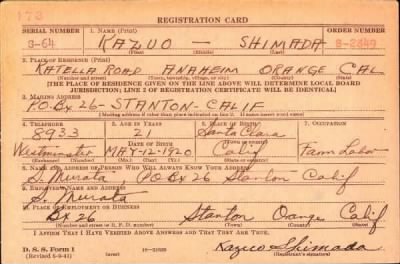 173
REGISTRATION CARD
SERIAL NUMBER 1. NAME (Print) ORDER NUMBER
S-64 KAZUO — SHIMADA S-2849
(First) (Middle) (Last)
2. PLACE OF RESIDENCE (Print)
KATELLA ROAD ANAHEIM ORANGE CAL
(Number and street) (Town, township, village, or city) (County) (State)
[THE PLACE OF RESIDENCE GIVEN ON THE LINE ABOVE WILL DETERMINE LOCAL BOARD
JURISDICTION; LINE 2 OF REGISTRATION CERTIFICATE WILL BE IDENTICAL]
3. MAILING ADDRESS
P.O. BX 26 - STANTON - CALIF
[Mailing address if other than place indicated on line 2. If same insert word same]
4. TELEPHONE 5. AGE IN YEARS 6. PLACE OF BIRTH 7. OCCUPATION
8933 21 Santa Clara
DATE OF BIRTH (Town or county)
Westminster MAY-12-1920 Calif Farm Labor
(Exchange) (Number) (Mo.) (Day) (Yr.) (State or country)
8. NAME AND ADDRESS OF PERSON WHO WILL ALWAYS KNOW YOUR ADDRESS
S. Murata, P.O. BX 26 Stanton Calif
9. EMPLOYER'S NAME AND ADDRESS
S. Murata
10. PLACE OF EMPLOYMENT OR BUSINESS
BX 26 Stanton Orange Calif
(Number and street or R. F. D. number) (Town) (County) (State)
I AFFIRM THAT I HAVE VERIFIED ABOVE ANSWERS AND THAT THEY ARE TRUE.
D. S. S. Form 1 Kazuo Shimada
(Revised 6-9-41) (over) (Registrant's signature)